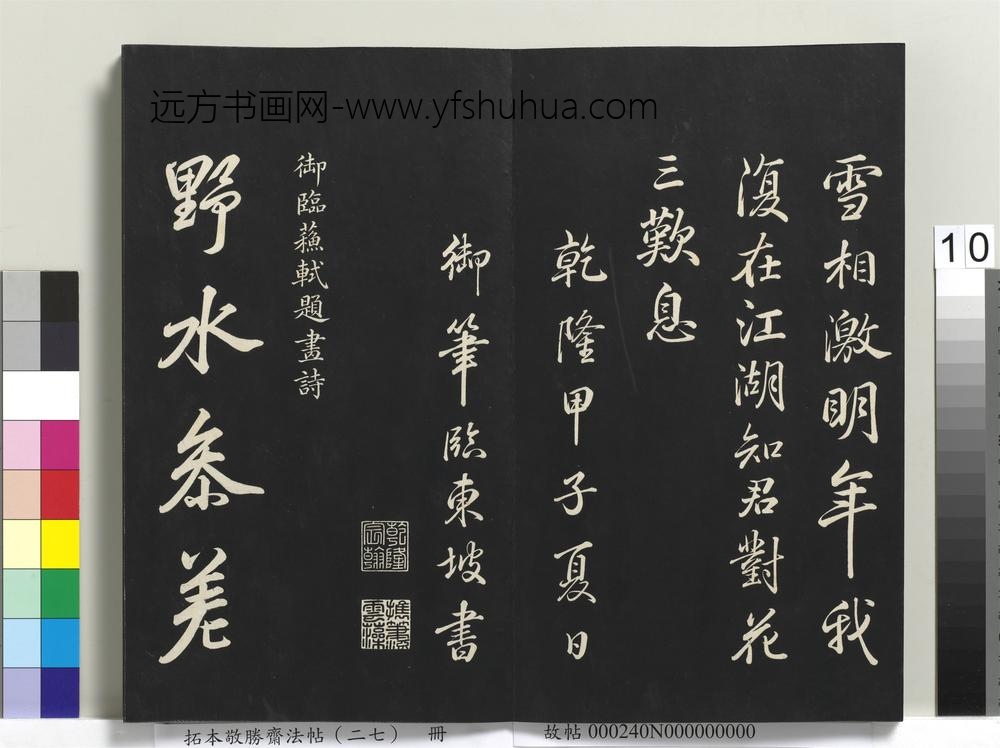 远方书画网-www.yfshuhua.com
雪相激明年我
復在江湖知君對花
三歎息
乾隆甲子夏日
御筆臨東坡书
乾隆
宸翰
御臨蘓軾題畫詩
野水叅差
10
拓本敬勝齋法帖（二七） 冊
故帖 000240N000000000